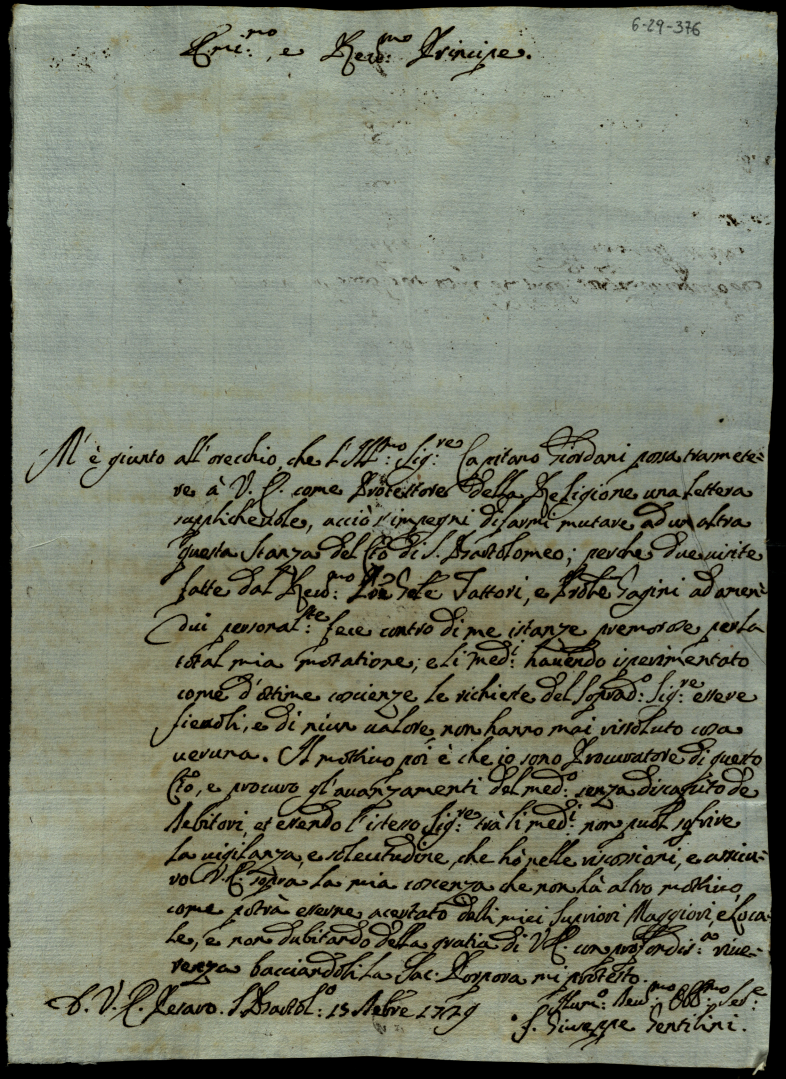 6-29-376
Emi:mo, e Rev:mo Principe.
M'è giunto all'orecchio, che l'Ill:mo Sig:re Capitano Giordani possa trasmete=
re à V. E. come Protettore della Religione una lettera
supplichevole, acciò s'impegni di farmi mutare ad un altra
questa stanza del Cto di S. Bartolomeo; perche due visite
fatte dal Rev:mo Gle Fattori, e Prole Gagini ad amen=
dui personal:te fece contro di me istanze premorose per la
total mia motatione; e li med:i havendo isperimentato
come d'ottime coscienze le richieste del Soprad:o Sig:re essere
fievoli, e di niun valore non hanno mai rissoluto cosa
veruna. Il mottivo poi è che io sono Procuratore di questo
Cto, e procuro gl'avanzamenti del med:o senza discapito de
Debitori, et essendo l'istesso Sig:re trà li med:i non puol soffrire
la vigilanza, e solecitudine, che hò nelle riscossioni, e assicu=
ro V. E. sopra la mia coscenza che non hà altro mottivo,
come potrà esserne acertato delli miei Supriori Maggiori, e Loca=
le, e non dubitando della gratia di V. E. con profondis:a rive=
renza bacciandoli la Sac: Porpora mi protesto.
D. V. E. Pesaro. S. Bartol:o 15 Mbre 1729
Hum:o Dev:mo Obb:mo Ser:e
f. Giuseppe Gentilini.